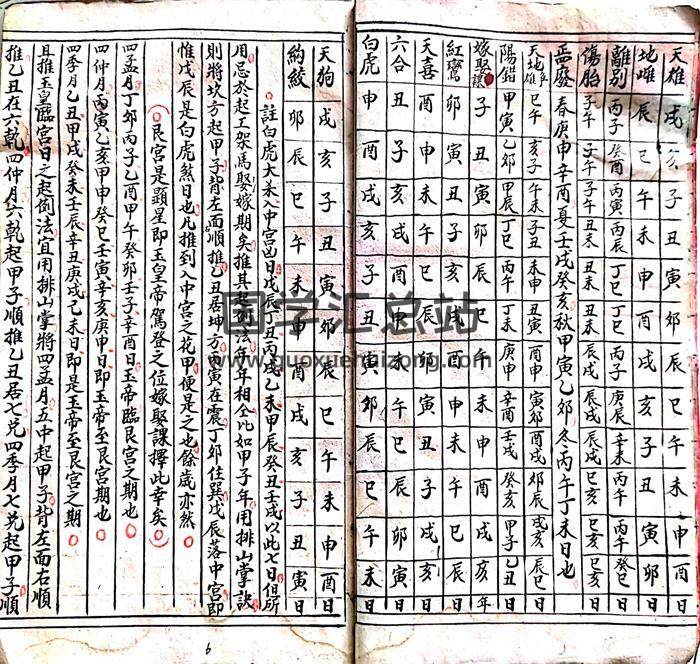 天雄 戌亥子丑寅卯辰巳午未申酉日
地雌 辰巳午未申酉戌亥子丑寅卯日
離别 丙子 癸酉 丙寅 丙辰 丁巳 丁巳 丙子 庚辰 辛未 丙午 丙午 癸巳日
傷胎 子午 子午 丑未 丑未 丑未 辰戌 辰戌 巳亥 巳亥 巳亥日
四廢 春庚申辛酉夏壬戌癸亥秋甲寅乙卯冬丙午丁未日也
天地雌 巳午 亥子 午未 子丑 未申 丑寅 申酉 寅卯 酉戌 卯辰 戌亥 辰巳日
陽錯 甲寅 乙卯 甲辰 丁巳 丙午 丁未 庚申 辛酉 壬戌 癸亥 甲子 乙丑日
嫁娶 子丑寅卯辰巳午未申酉戌亥年
紅鸞 卯寅丑子亥戌酉申未午巳辰日
天喜 酉申未午巳辰卯寅丑子戌亥日
六合 丑子亥戌酉申未午巳辰卯寅日
白虎 申酉戌亥子丑寅卯辰巳午未日
天狗 戌亥子丑寅卯辰巳午未申酉日
約絞 卯辰巳午未申酉戌亥子丑寅日
註白虎大殺入中宫凶日戊辰丁丑丙戌乙未甲辰癸丑壬戌以此七日但所
用忌於起工架馬娶嫁期矣推其起例法年年相仝比如甲子年用排山掌訣
則將坎方起甲子背左面順推乙丑居坤方丙寅在震丁卯住巽戊辰落中宫即
惟戊辰是白虎煞日也凡推到入中宫之花甲便是之也餘歲亦然
艮宫是顕星即玉皇帝駕登之位嫁娶課擇此幸矣
四孟月丁卯丙子乙酉甲午癸卯壬子辛酉日玉帝臨艮宫之期也
四仲月丙寅乙亥甲申癸巳壬寅辛亥庚申日即玉帝至艮宫期也
四季月乙丑甲戌癸未壬辰辛丑庚戌己未日即是玉帝至艮宫之期
且推玉皇臨宫日之起例法宜用排山掌將四孟月五中起甲子背左面右順
推乙丑在六乾四仲月六乾起甲子順推乙丑居七兑四季月七兑起甲子順
6
国学汇总站
www.guoxuehuizong.com